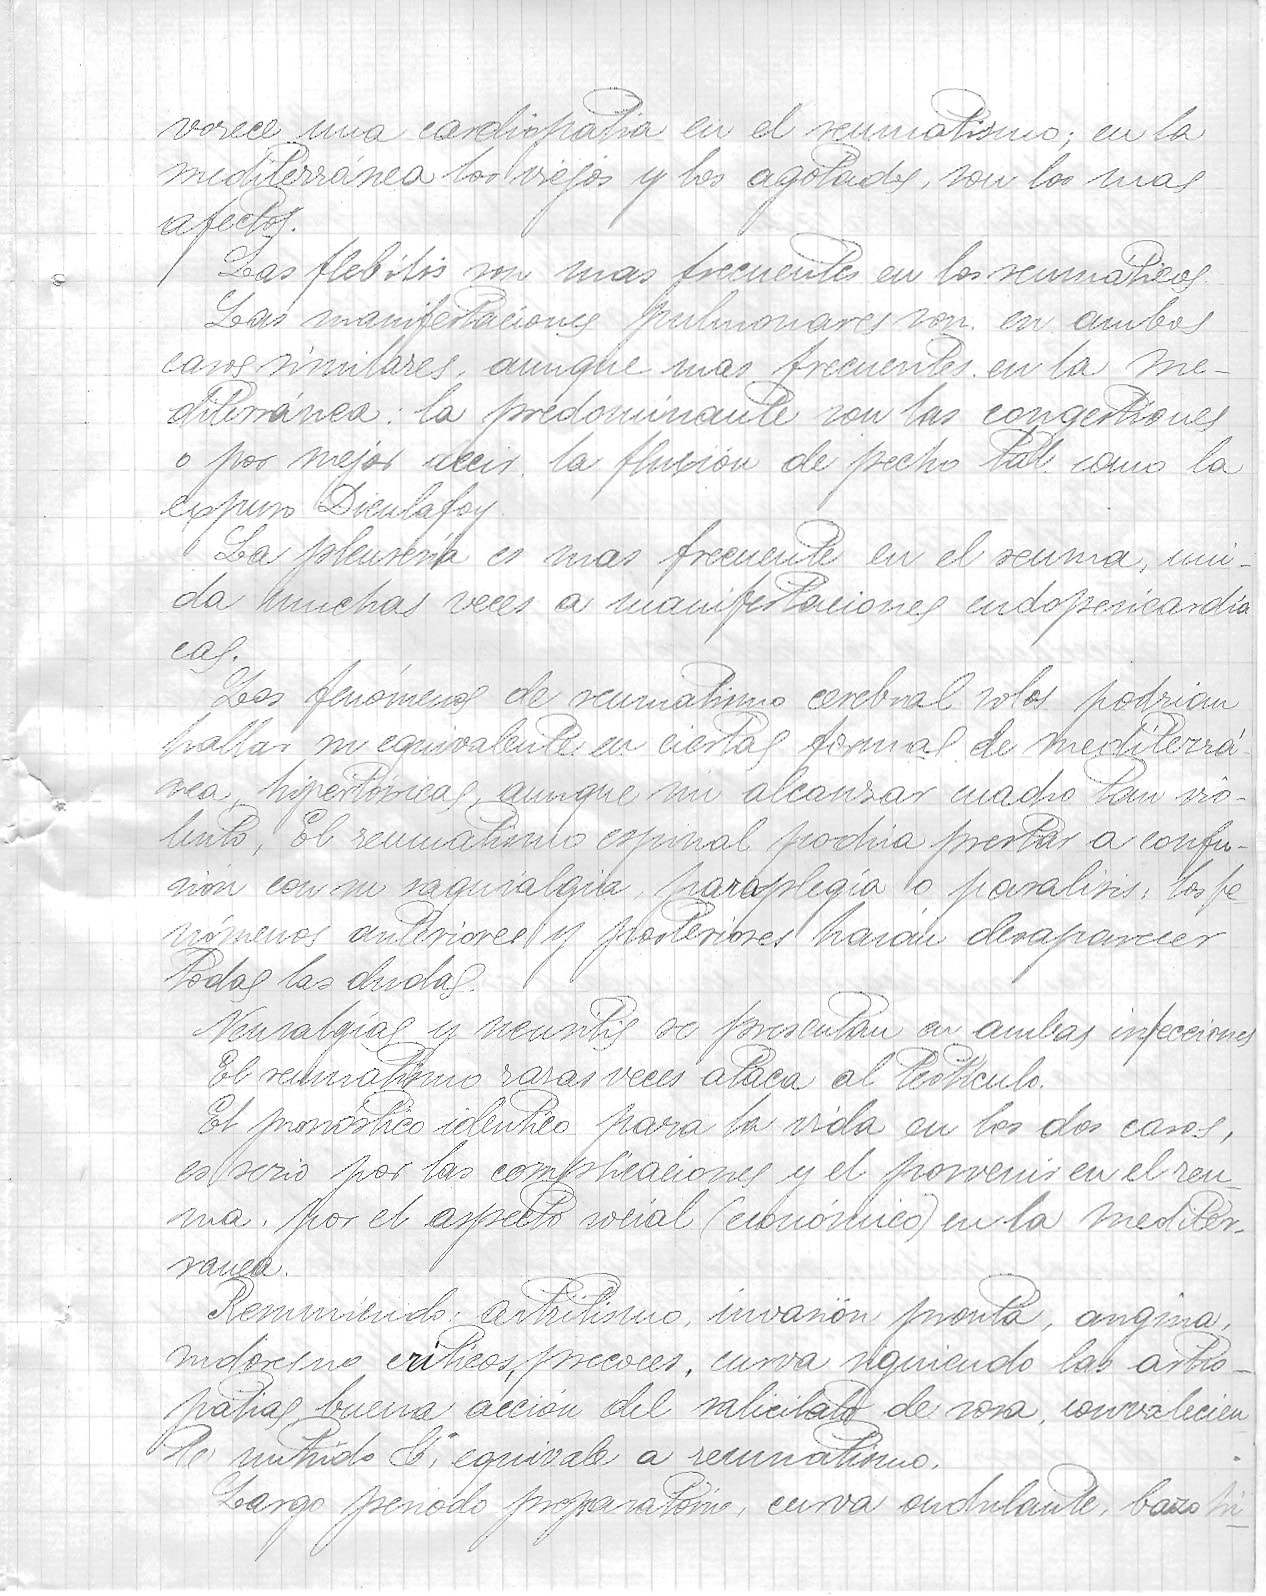 vorece una cardiopatia en el reumatismo; en la
mediterránea los viejos y los agotados, son los mas
afectos.
Las flebitis son mas frecuentes en los reumaticos.
Las manifestaciones pulmonares son en ambos
casos similares, aunque mas frecuentes en la me-
diterránea: la predominante son las congestiones
o por mejor decir, la fluxión de pecho tal como la
expuso Dieulafoy.
La pleuresia es mas frecuente en el reuma, uni-
da muchas veces a manifestaciones endopericardia
cas.
Los fenómenos de reumatismo cerebral solos podrian
hallar su equivalente en ciertas formas de mediterrá-
nea, hipertóxicas, aunque sin alcanzar cuadro tan vio-
lento, El reumatismo espinal podria prestar a confu-
sión con su raquialgia, paraplegia o paralisis; los fe-
nómenos anteriores y posteriores harán desaparecer
todas las dudas.
Neuralgias y neuritis se presentan en ambas infecciones
El reumatismo raras veces ataca al testiculo.
El pronóstico identico para la vida en los dos casos,
es serio por las complicaciones y el porvenir en el reu-
ma, por el aspecto social (económico) en la mediter-
ranea.
Resumiendo: artritismo, invasión pronta, angina,
sudores no criticos, precoces, curva siguiendo las artro-
patias, buena acción del salicilato de sosa, convalecien
te nutrido &, equivale a reumatismo.
Largo periodo preparatorio, curva ondulante, bazo hi-